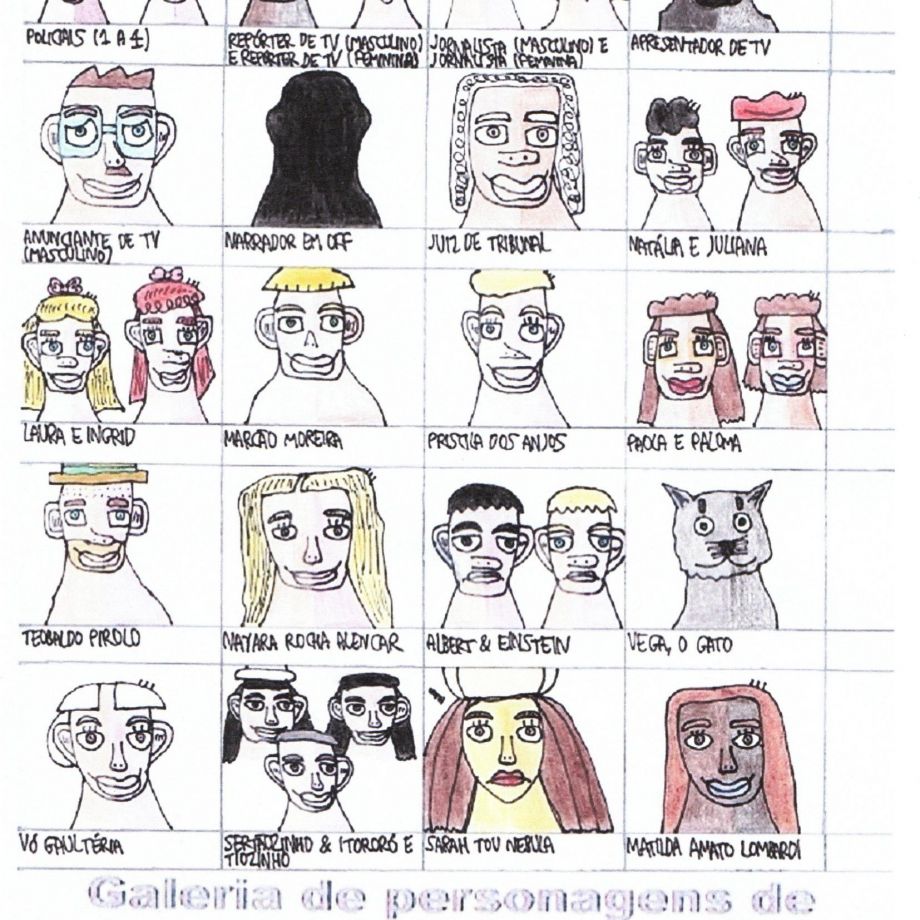 POLICIAIS (1 A 4)
REPÓRTER DE TV (MASCULINO)
E REPÓRTER DE TV (FEMININA)
JORNALISTA (MASCULINO) E
JORNALISTA (FEMININA)
APRESENTADOR DE TV
ANUNCIANTE DE TV
(MASCULINO)
NARRADOR EM OFF
JUIZ DE TRIBUNAL
NATÁLIA E JULIANA
LAURA E INGRID
MARCÃO MOREIRA
PRISCILA DOS ANJOS
PAOLA E PALOMA
TEOBALDO PIROLO
NAYARA ROCHA ALENCAR
ALBERT & EINSTEIN
VEGA, O GATO
VÓ GAULTÉRIA
SERTÃOZINHO & ITORORÓ E
TIOZINHO
SARAH TOV NEBULA
MATILDA AMATO LOMBARDI
Galeria de personagens de